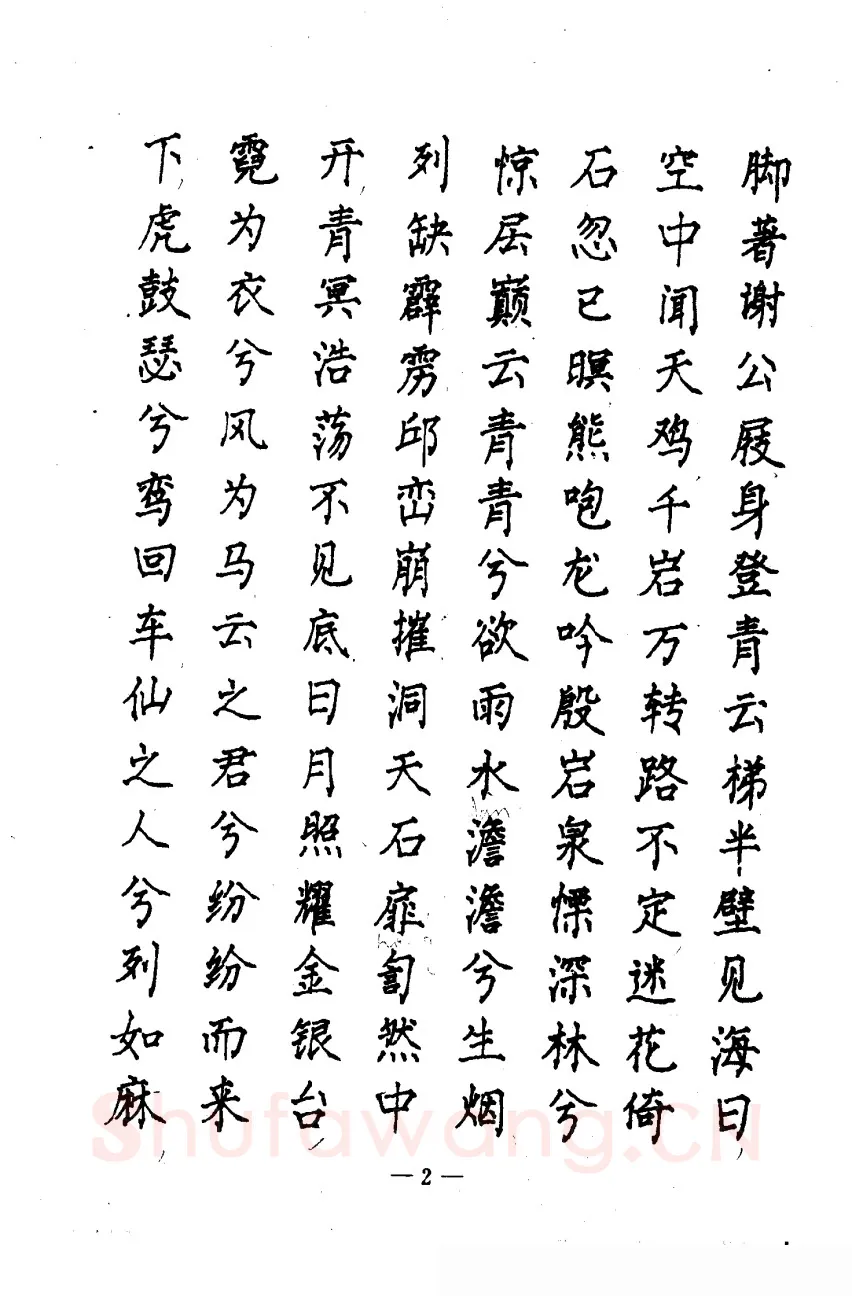 脚著谢公屐身登青云梯半壁见海日
空中闻天鸡千岩万转路不定迷花倚
石忽已暝熊咆龙吟殷岩泉慄深林兮
惊层巅云青青兮欲雨水澹澹兮生烟
列缺霹雳邱峦崩摧洞天石扉訇然中
开青冥浩荡不见底日月照耀金银台
霓为衣兮风为马云之君兮纷纷而来
下虎鼓瑟兮鸾回车仙之人兮列如麻
— 2 —
Shufawang.CN